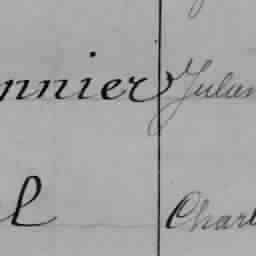 nnier Julan
l Charl